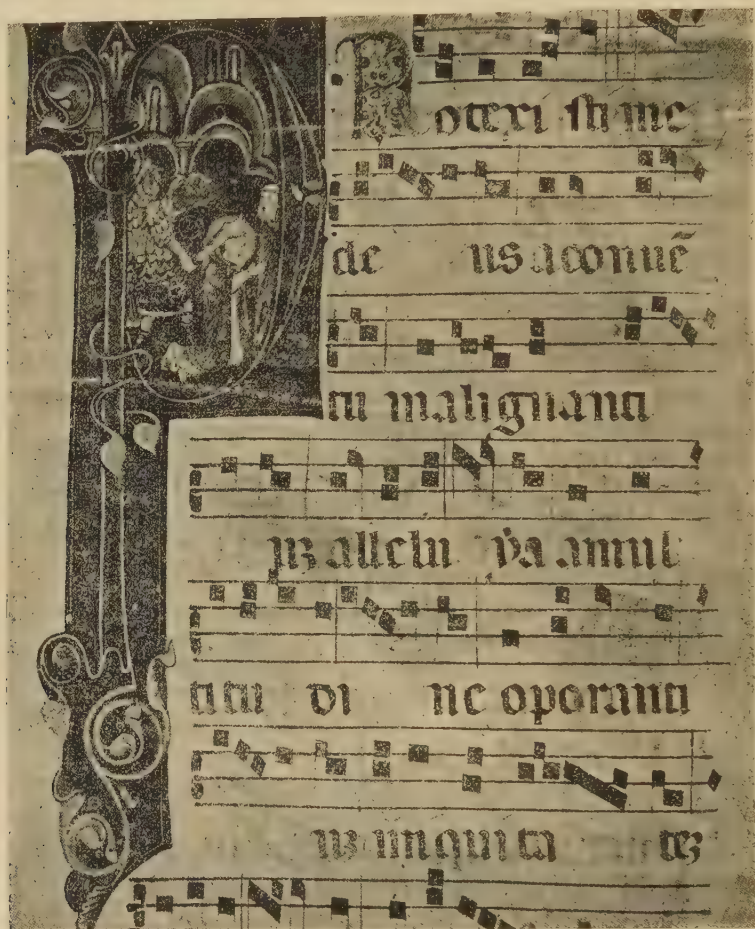 Protexi sti me
de us a conuē
tu malignanti
uz allelu ya a mul
titu di ne operanti
uz iniquita tez